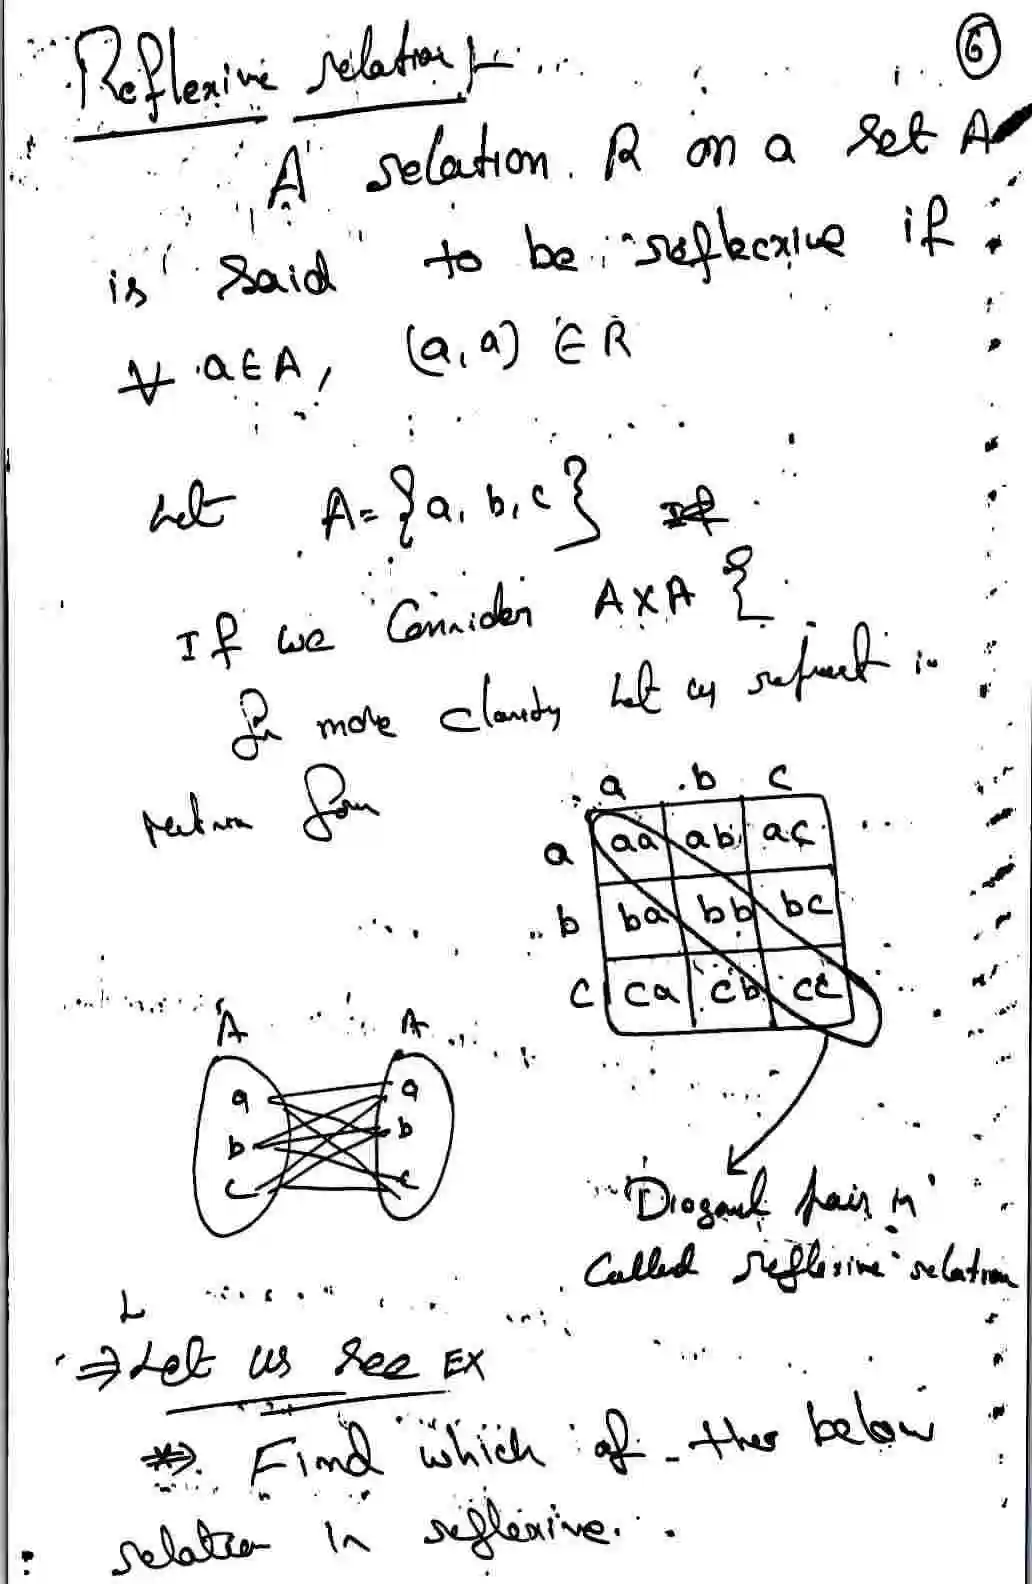 6
Reflexive relation :-
A relation R on a set A
is said to be reflecxive if
∀ a∈A, (a,a) ∈ R
Let A={a,b,c} If
If we Consider A×A {
for more clarity Let us represent in
form
a b c
a aa ab ac
b ba bb bc
c ca cb cc
A A
a a
b b
c c
Diogonal pair is
Called reflexive relation
L
⇒ Let us see EX
* Find which of the below
relation is reflexive.